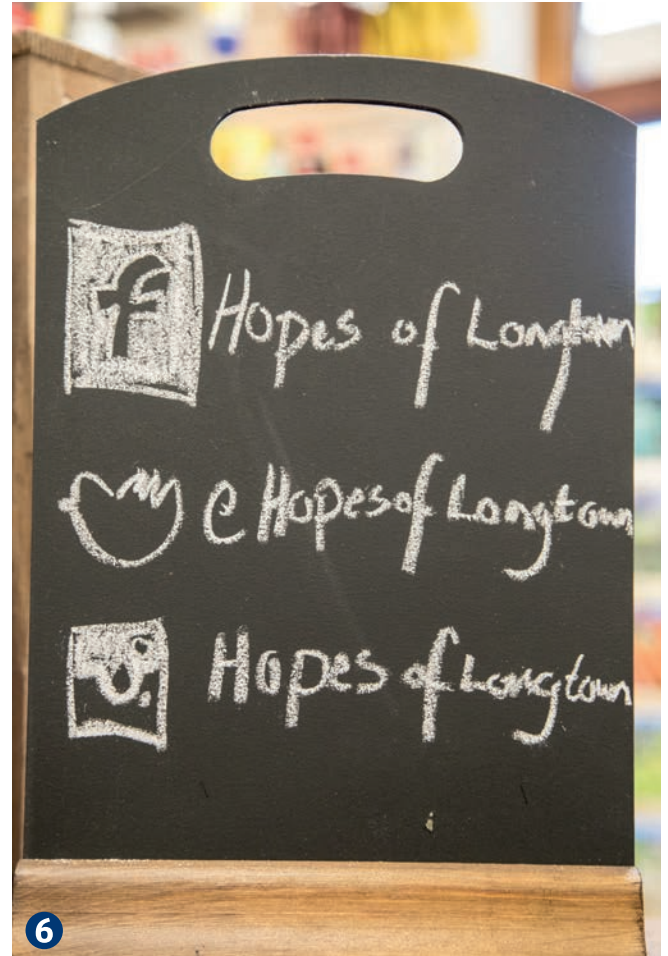 f Hopes of Longtown
@ Hopes of Longtown
Hopes of Longtown
6